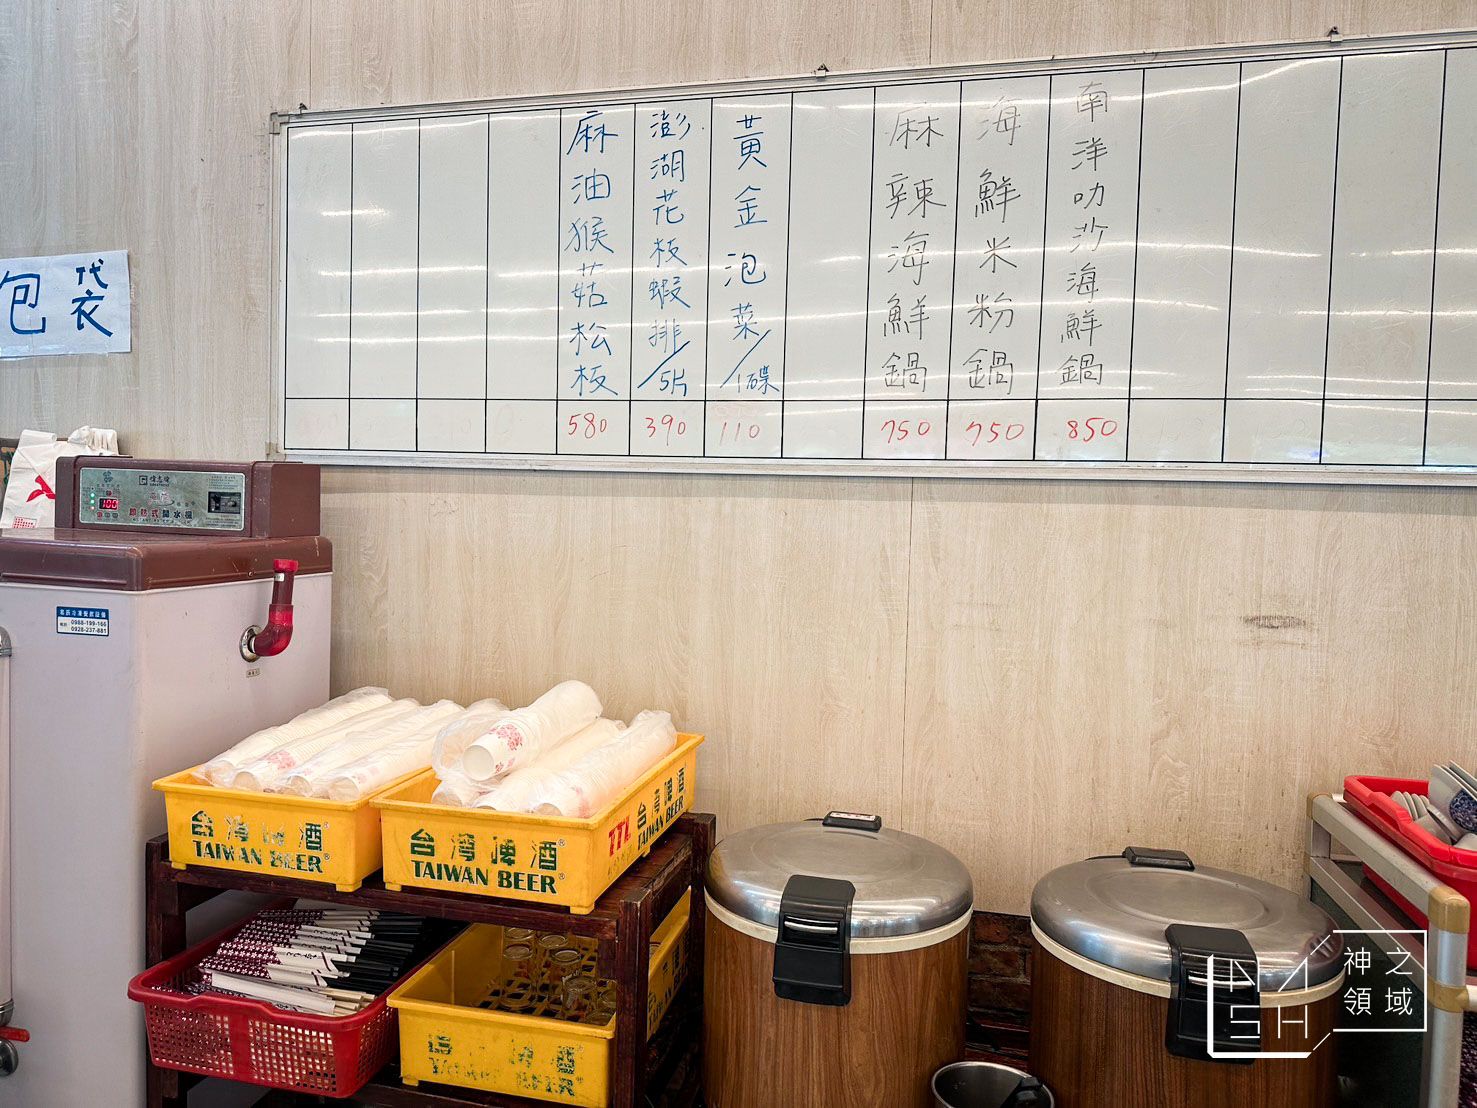 包袋
麻油猴菇松板
580
澎湖花枝蝦排/5片
390
黃金泡菜/1碟
110
麻辣海鮮鍋
750
海鮮米粉鍋
750
南洋叻沙海鮮鍋
850
偉志牌
100
即熱式開水機
0988-199-166
0928-237-881
台灣啤酒®
TAIWAN BEER®
台灣啤酒®
TAIWAN BEER®
TTL
台灣啤酒
TAIWAN BEER
台灣啤酒
TAIWAN BEER
DA
SH
神之
領域